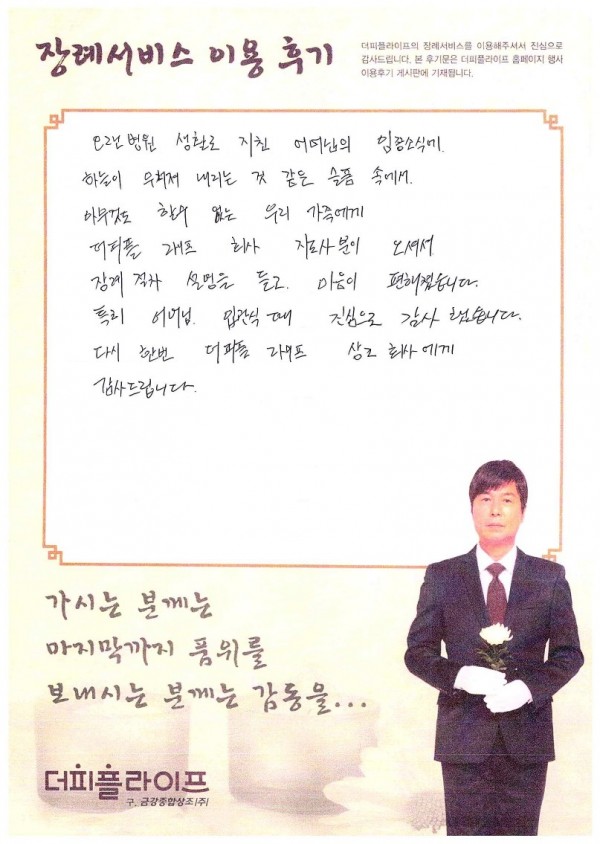 장례서비스 이용 후기
더피플라이프의 장례서비스를 이용해주셔서 진심으로
감사드립니다. 본 후기문은 더피플라이프 홈페이지 행사
이용후기 게시판에 기재됩니다.
오랜병원 생활로 지친 어머님의 임종소식에.
하늘이 무너져 내리는 것 같은 슬픔 속에서.
아무것도 할수 없는 우리 가족에게
더피플 라이프 회사 지도사분이 오셔서
장례 절차 설명을 듣고. 마음이 편해졌습니다.
특히 어머님. 입관식 때 진심으로 감사 했습니다.
다시 한번 더피플 라이프 상조 회사에게
감사드립니다.
가시는 분께는
마지막까지 품위를
보내시는 분께는 감동을...
더피플라이프
구. 금강종합상조(주)